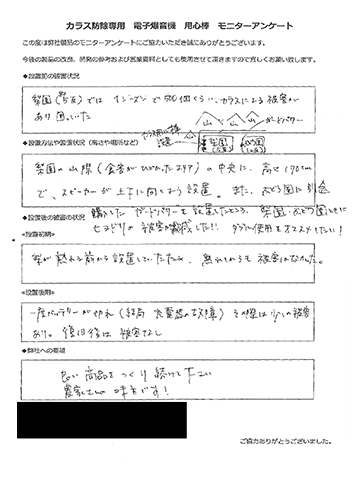 カラス防除専用　電子爆音機　用心棒　モニターアンケート
この度は弊社製品のモニターアンケートにご協力いただき誠にありがとうございます。
今後の製品の改良、開発の参考および営業資料としても使用させて頂きますので宜しくお願い致します。
◆設置前の被害状況
梨園では 1シーズンで 500個くらい、カラスによる被害が
あり 困っていた
◆設置方法や設置状況（高さや場所など）
山 山 ガードパワー
梨園の山際（食害がひどかったエリア）の中央に、高さ170cm
で、スピーカーが上下に向くよう設置。また、ぶどう園に
◆設置後の被害の状況
購入した ガードパワーも設置したところ、梨園・ぶどう園ともに
ヒヨドリの被害が激減した!! ダブル使用をオススメしたい！
«設置初期»
梨が熟れる前から設置していたため、熟れてからも被害はなかった。
«設置後期»
一度バッテリーが切れ（結局 充電器の故障）その際は少し被害
あり。復旧後は被害なし
◆弊社への要望
良い商品をつくり続けて下さい
農家さんの味方です！
ご協力ありがとうございました。